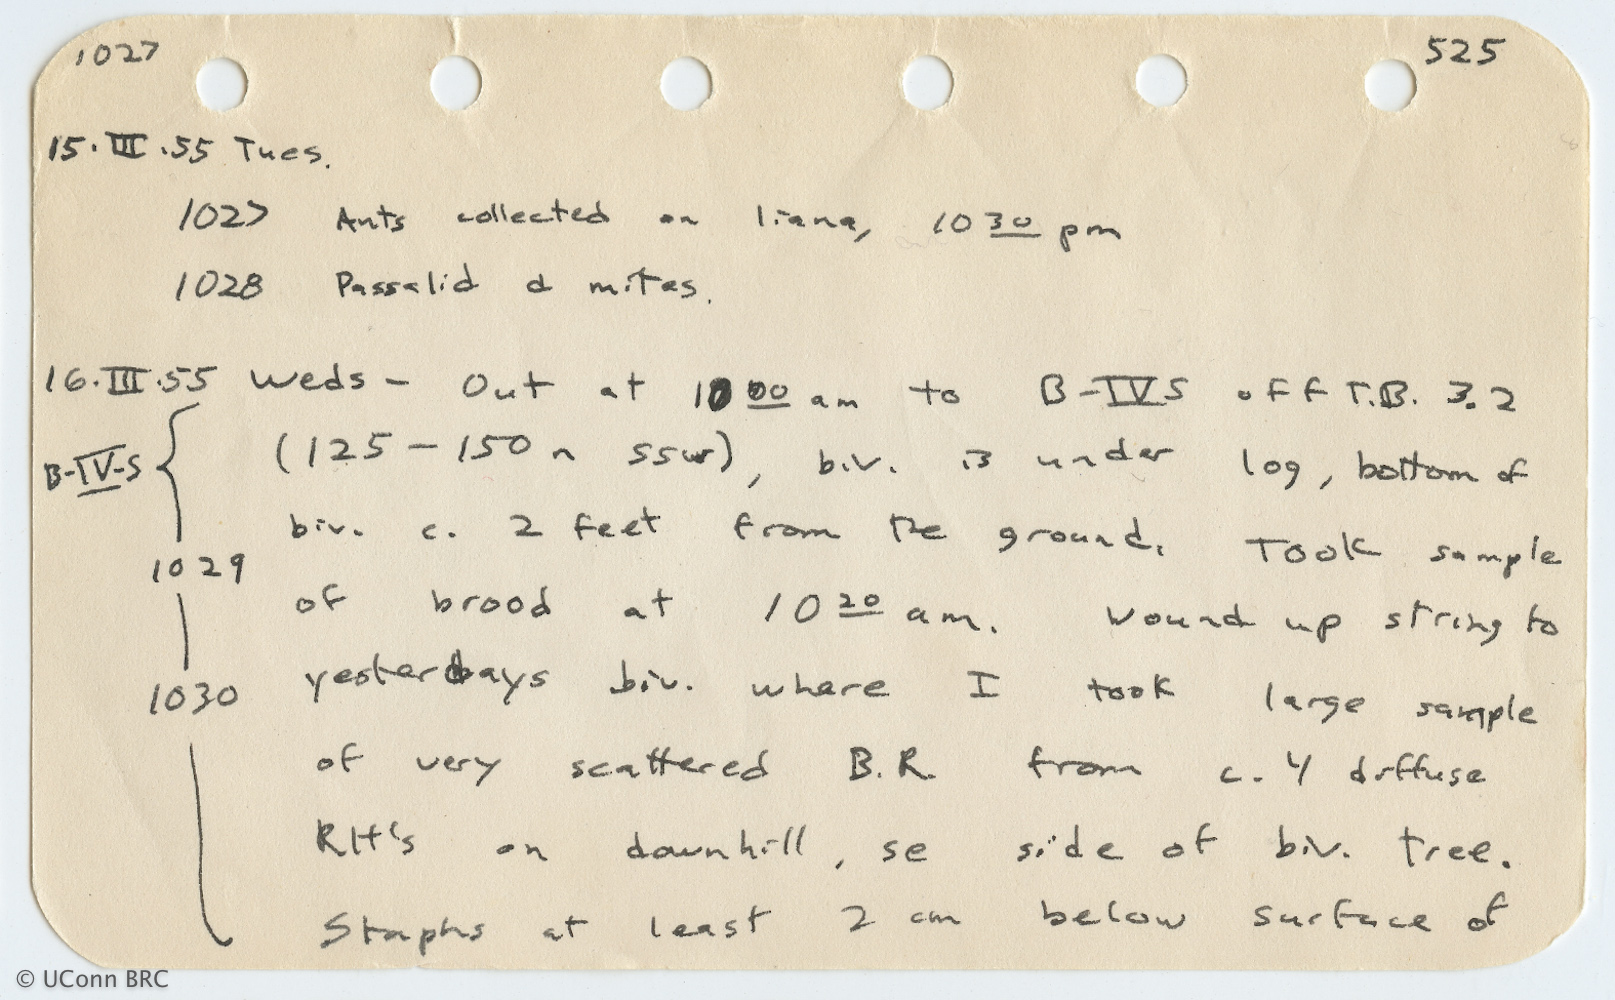 1027 525
15.III.55 Tues.
1027 Ants collected on liana, 10 30 pm
1028 Passalid d mites.
16.III.55 Weds - Out at 10 00 am to B-IVS off T.B. 3.2
B-IV-S (125-150 n ssw), biv. is under log, bottom of
biv. c. 2 feet from the ground. Took sample
1029
of brood at 10 20 am. Wound up string to
1030 yesterdays biv. where I took large sample
of very scattered B.R. from c. 4 diffuse
RH's on downhill, se side of biv. tree.
Staphs at least 2 cm below surface of
© UConn BRC